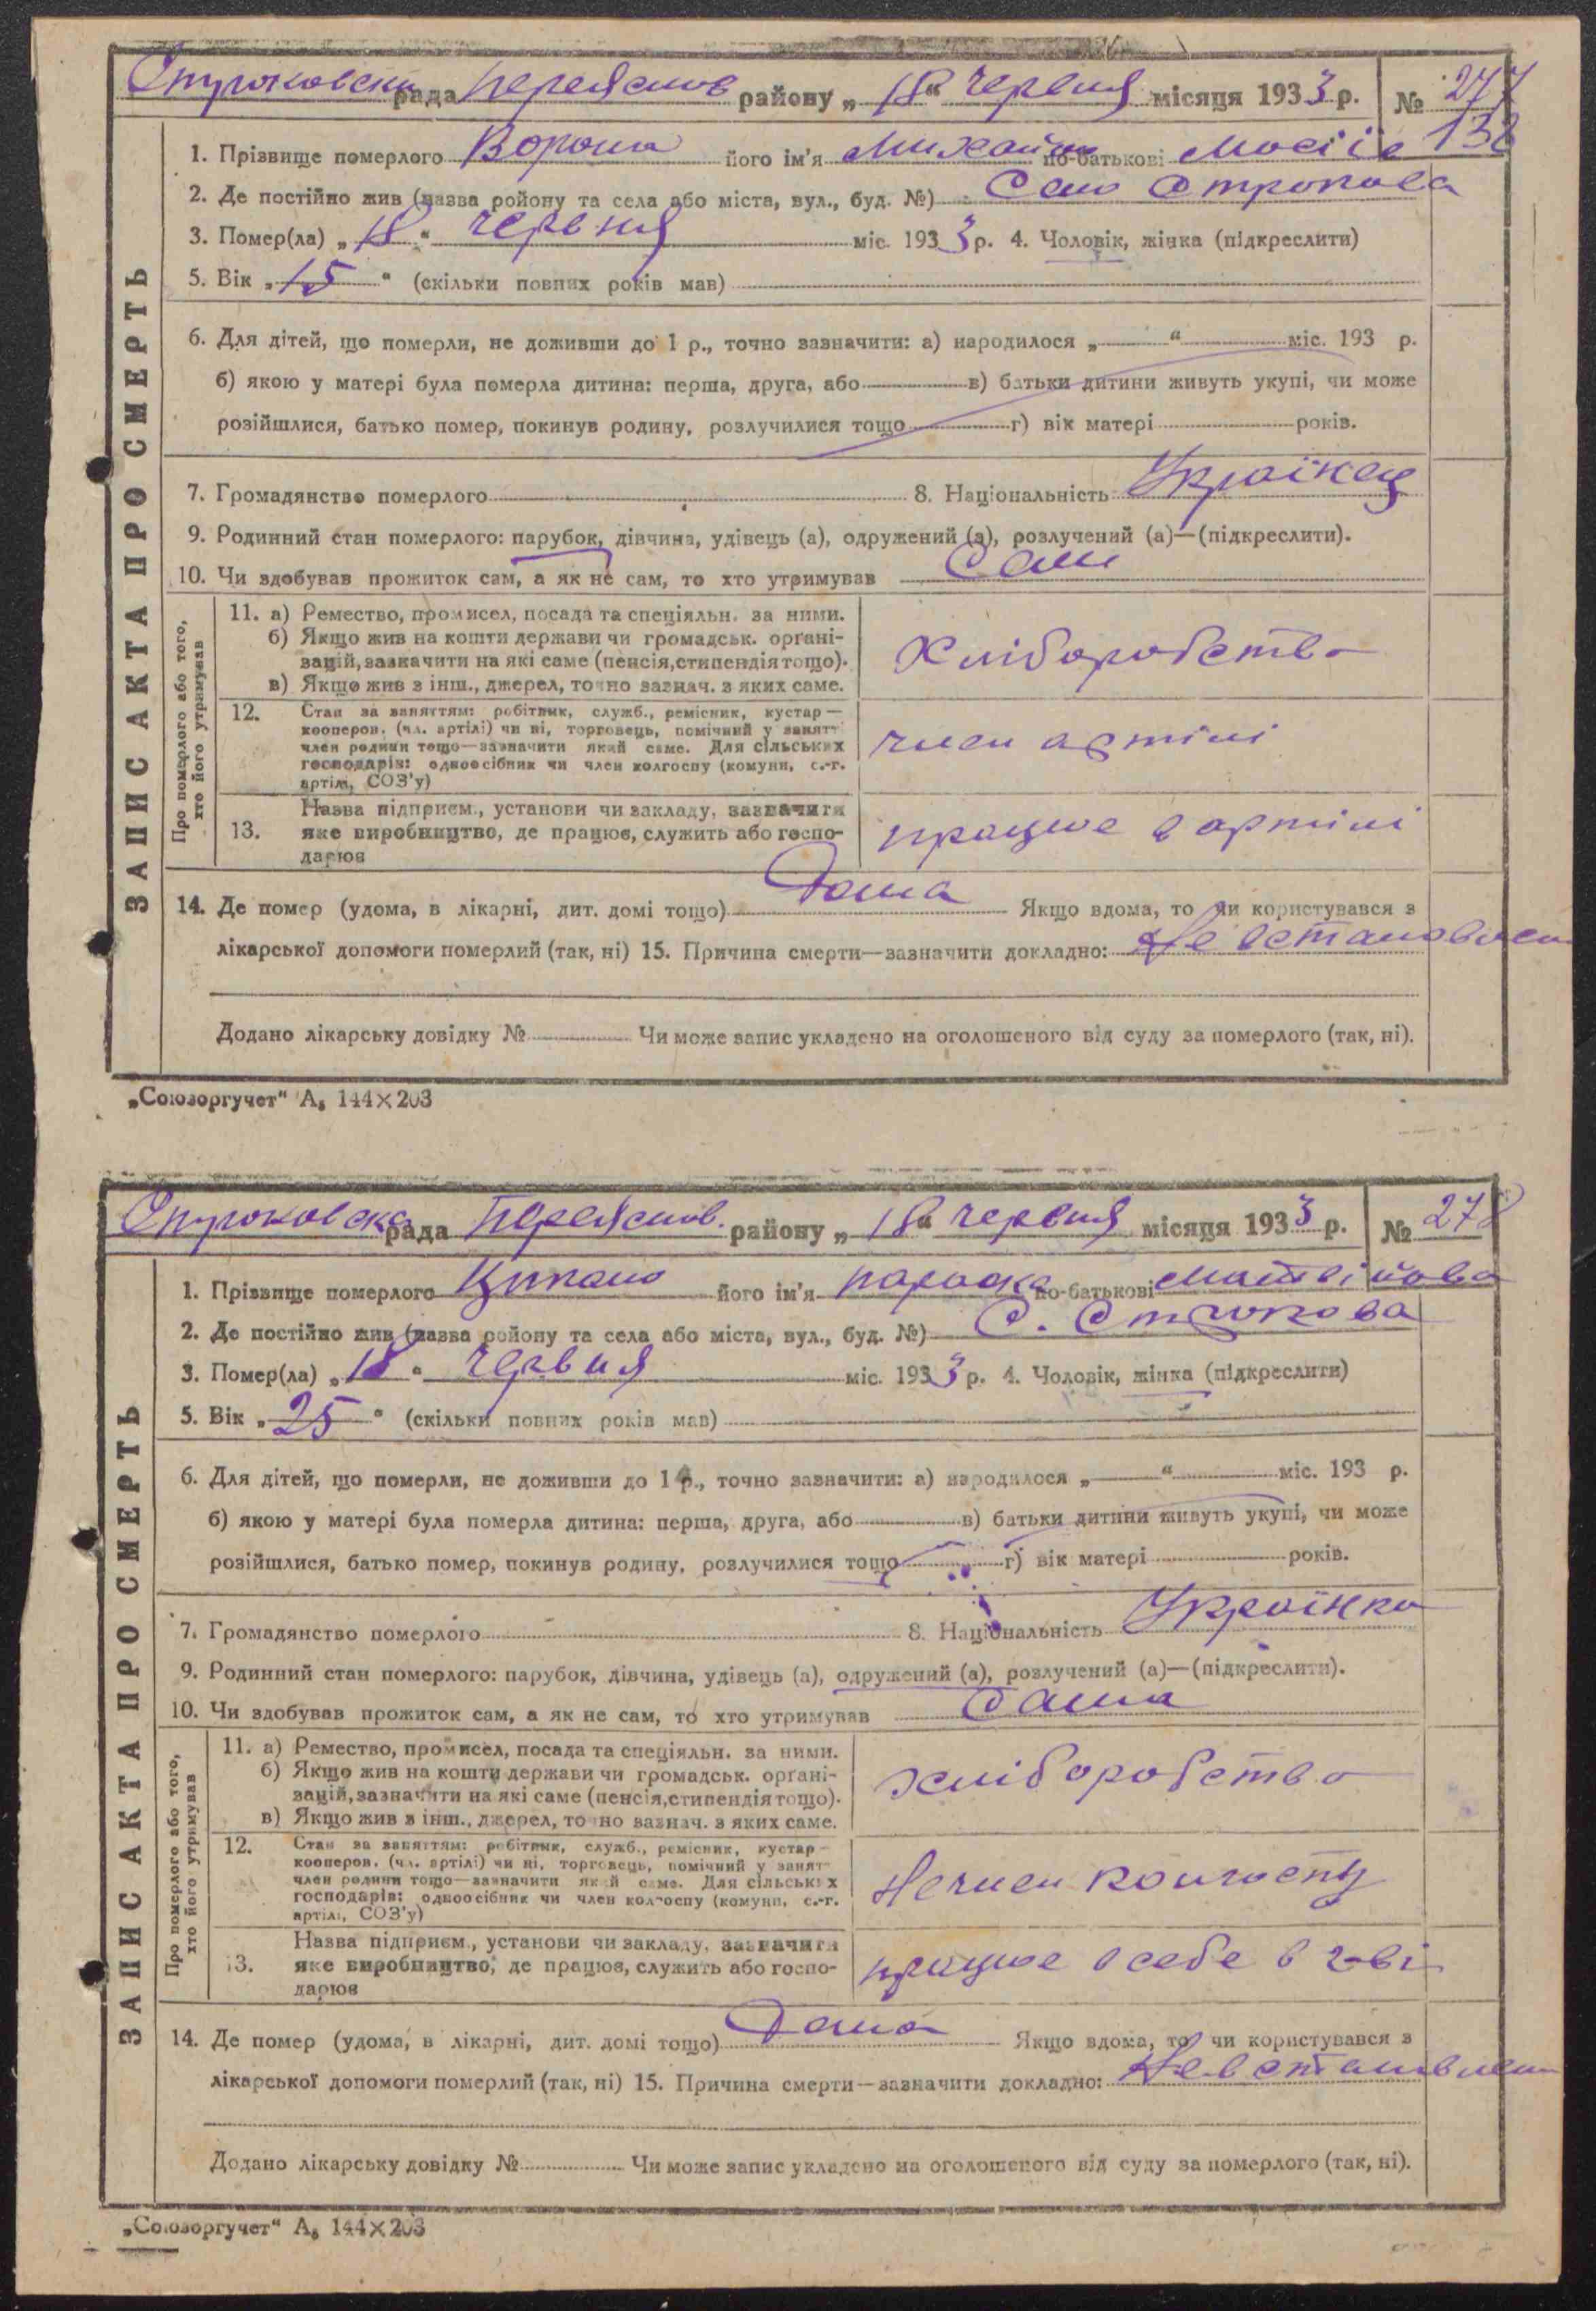 рада Переяслов району „ 18 “ червня місяця 1933 р. № 277
138
1. Прізвище померлого Ворона його ім'я Михайло по-батькові
2. Де постійно жив (назва ройону та села або міста, вул., буд. №) Село Строкова
3. Помер(ла) „ 18 “ червня міс. 1933 р. 4. Чоловік, жінка (підкреслити)
5. Вік „ 15 “ (скільки повних років мав)
6. Для дітей, що померли, не доживши до 1 р., точно зазначити: а) народилося „ “ міс. 193 р.
б) якою у матері була померла дитина: перша, друга, або в) батьки дитини живуть укупі, чи може
розійшлися, батько помер, покинув родину, розлучилися тощо г) вік матері років.
7. Громадянство померлого 8. Національність Українец
9. Родинний стан померлого: парубок, дівчина, удівець (а), одружений (а), розлучений (а)—(підкреслити).
10. Чи здобував прожиток сам, а як не сам, то хто утримував Сам
ЗАПИС АКТА ПРО СМЕРТЬ
Про померлого або того,
хто його утримував
11. а) Ремество, промисел, посада та спеціяльн. за ними.
б) Якщо жив на кошти держави чи громадськ. органі-
зацій, зазначити на які саме (пенсія, стипендія тощо).
в) Якщо жив з інш., джерел, точно зазнач. з яких саме.
Хліборобство
12. Стан за заняттям: робітник, служб., ремісник, кустар—
кооперов. (чл. артілі) чи ні, торговець, помічний у занят-
член родини тощо—зазначити який саме. Для сільських
господарів: одноосібник чи член колгоспу (комуни, с.-г.
артілі, СОЗ'у)
член артілі
13. Назва підприєм., установи чи закладу, зазначити
яке виробництво, де працює, служить або госпо-
дарює
працює в артілі
14. Де помер (удома, в лікарні, дит. домі тощо) Дома Якщо вдома, то чи користувався з
лікарської допомоги померлий (так, ні) 15. Причина смерти—зазначити докладно: Не встановлен
Додано лікарську довідку № Чи може запис укладено на оголошеного від суду за померлого (так, ні).
„Союзоргучет“ А₅ 144×203
рада Переяслов. району „ 18 “ червня місяця 1933 р. № 278
1. Прізвище померлого його ім'я Параска по-батькові Матвійова
2. Де постійно жив (назва ройону та села або міста, вул., буд. №) С. Строкова
3. Помер(ла) „ 18 “ червня міс. 1933 р. 4. Чоловік, жінка (підкреслити)
5. Вік „ 25 “ (скільки повних років мав)
6. Для дітей, що померли, не доживши до 1 р., точно зазначити: а) народилося „ “ міс. 193 р.
б) якою у матері була померла дитина: перша, друга, або в) батьки дитини живуть укупі, чи може
розійшлися, батько помер, покинув родину, розлучилися тощо г) вік матері років.
7. Громадянство померлого 8. Національність Українка
9. Родинний стан померлого: парубок, дівчина, удівець (а), одружений (а), розлучений (а)—(підкреслити).
10. Чи здобував прожиток сам, а як не сам, то хто утримував Сама
ЗАПИС АКТА ПРО СМЕРТЬ
Про померлого або того,
хто його утримував
11. а) Ремество, промисел, посада та спеціяльн. за ними.
б) Якщо жив на кошти держави чи громадськ. органі-
зацій, зазначити на які саме (пенсія, стипендія тощо).
в) Якщо жив з інш., джерел, точно зазнач. з яких саме.
хліборобство
12. Стан за заняттям: робітник, служб., ремісник, кустар—
кооперов. (чл. артілі) чи ні, торговець, помічний у занят-
член родини тощо—зазначити який саме. Для сільських
господарів: одноосібник чи член колгоспу (комуни, с.-г.
артілі, СОЗ'у)
Нечлен колгоспу
13. Назва підприєм., установи чи закладу, зазначити
яке виробництво, де працює, служить або госпо-
дарює
працює в себе в г-ві
14. Де помер (удома, в лікарні, дит. домі тощо) Дома Якщо вдома, то чи користувався з
лікарської допомоги померлий (так, ні) 15. Причина смерти—зазначити докладно: Не встановлен
Додано лікарську довідку № Чи може запис укладено на оголошеного від суду за померлого (так, ні).
„Союзоргучет“ А₅ 144×203